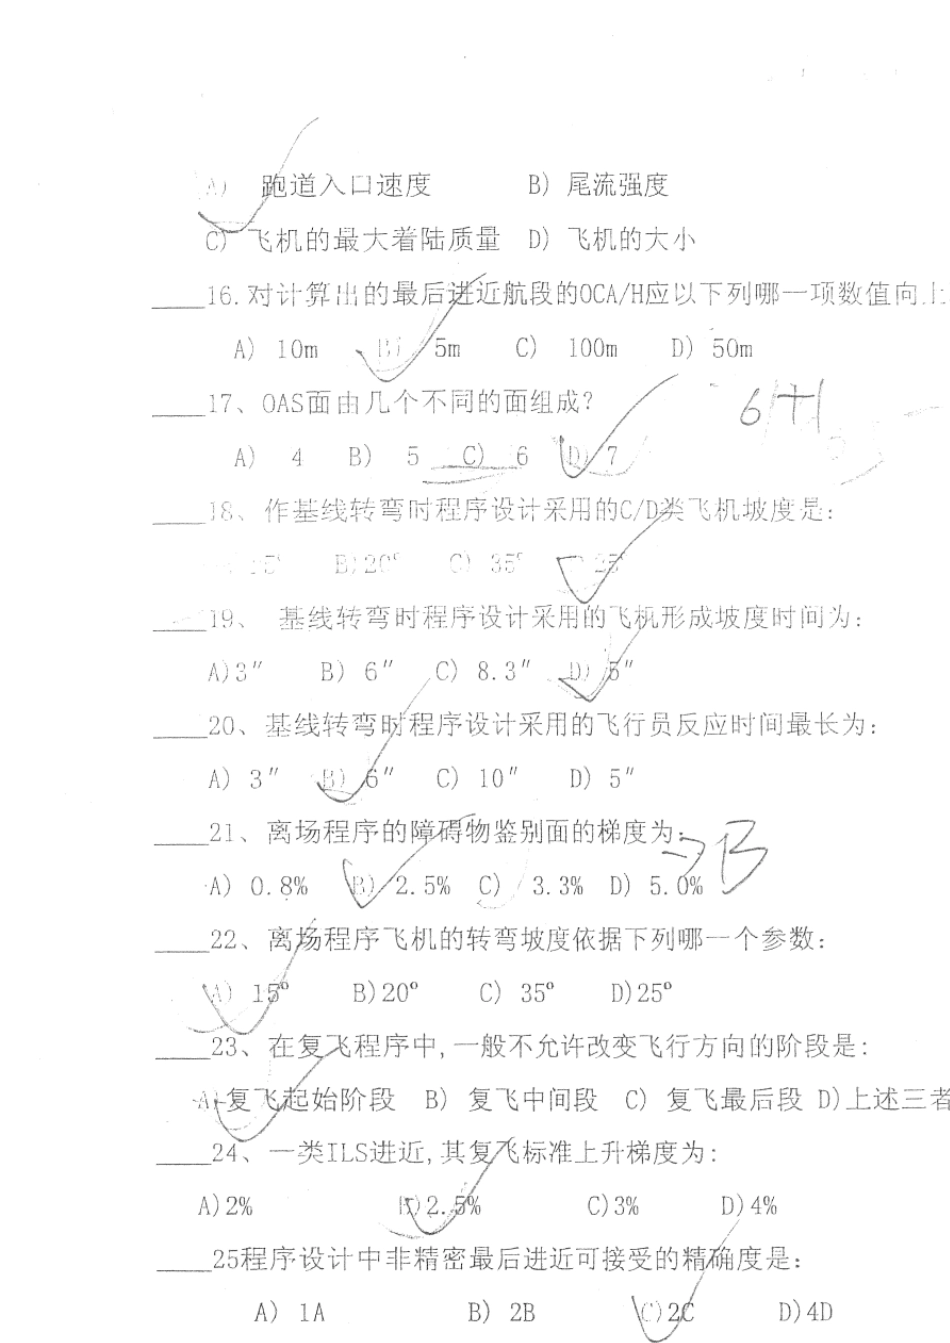 A） 跑道入口速度 B） 尾流强度
C） 飞机的最大着陆质量 D） 飞机的大小
____16.对计算出的最后进近航段的OCA/H应以下列哪一项数值向上
A） 10m B） 5m C） 100m D） 50m
____17、OAS面由几个不同的面组成？ 6+1
A） 4 B） 5 C） 6 D） 7
____18、作基线转弯时程序设计采用的C/D类飞机坡度是：
15° B)20° C） 35° 25°
____19、 基线转弯时程序设计采用的飞机形成坡度时间为：
A)3″ B） 6″ C） 8.3″ D） 5″
____20、基线转弯时程序设计采用的飞行员反应时间最长为：
A） 3″ B） 6″ C） 10″ D） 5″
____21、离场程序的障碍物鉴别面的梯度为： B
A） 0.8% B） 2.5% C） 3.3% D） 5.0%
____22、离场程序飞机的转弯坡度依据下列哪一个参数：
A） 15° B)20° C） 35° D)25°
____23、在复飞程序中,一般不允许改变飞行方向的阶段是：
A)复飞起始阶段 B） 复飞中间段 C） 复飞最后段 D)上述三者
____24、一类ILS进近,其复飞标准上升梯度为：
A)2% B)2.5% C)3% D)4%
____25程序设计中非精密最后进近可接受的精确度是：
A） 1A B） 2B C)2C D)4D